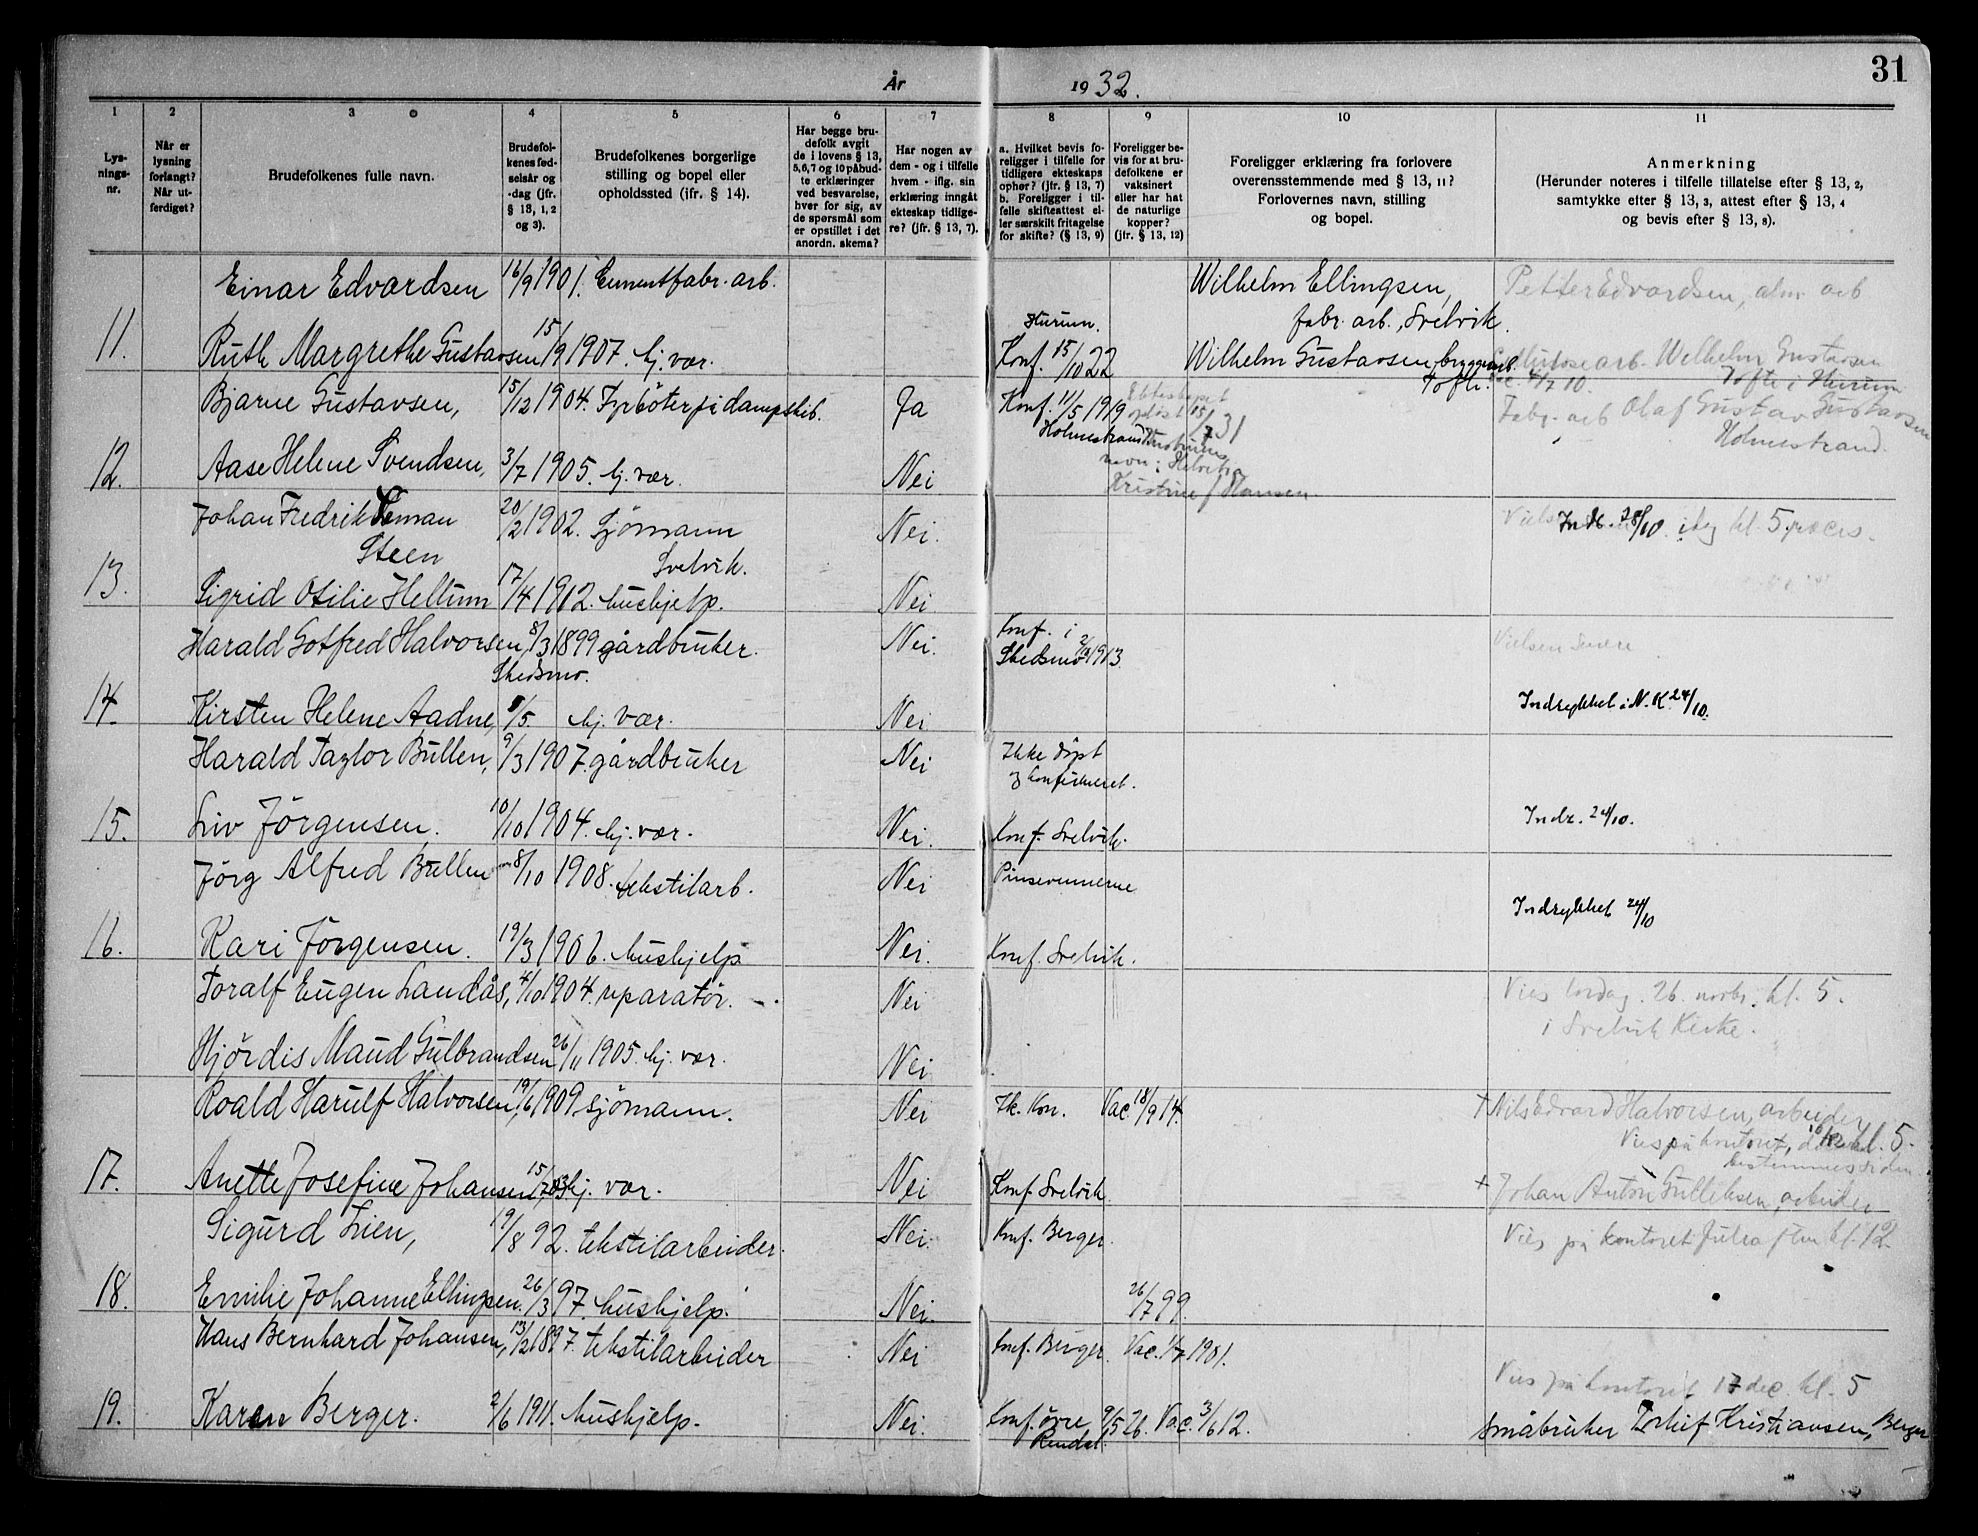 31
År 1932.
1 2 3 4 5 6 7 8 9 10 11
Lysningsnr.
Når er lysning forlangt? Når utferdiget?
Brudefolkenes fulle navn.
Brudefolkenes fødselsår og -dag (jfr. § 13, 1, 2 og 3).
Brudefolkenes borgerlige stilling og bopel eller opholdssted (jfr. § 14).
Har begge brudefolk avgit de i lovens § 13, 5,6,7 og 10 påbudte erklæringer ved besvarelse, hver for sig, av de spørsmål som er opstillet i det anordn. skema?
Har nogen av dem - og i tilfelle hvem - iflg. sin erklæring inngåt ekteskap tidligere? (jfr. § 13, 7).
a. Hvilket bevis foreligger i tilfelle for tidligere ekteskaps ophør? (jfr. § 13, 7) b. Foreligger i tilfelle skifteattest eller særskilt fritagelse for skifte? (§ 13, 9)
Foreligger bevis for at brudefolkene er vaksinert eller har hat de naturlige kopper? (jfr. § 13, 12)
Foreligger erklæring fra forlovere overensstemmende med § 13, 11? Forlovernes navn, stilling og bopel.
Anmerkning (Herunder noteres i tilfelle tillatelse efter § 13, 2, samtykke efter § 13, 3, attest efter § 13, 4 og bevis efter § 13, 8).
Einar Edvardsen 16/9 1901. Cementfabr. arb. Wilhelm Ellingsen, Petter Edvardsen, alm arb
fabr. arb., Svelvik.
11. Ruth Margrethe Gustavsen 15/9 1907. hj. vær. Hurum. Konf. 15/10 22 Wilhelm Gustavsen, bryggearb. Tofte. arb. Wilhelm Gustavsen
Tofte i Hurum
Bjarne Gustavsen, 15/12 1904. Fyrböter på dampskib. Ja Konf. 11/5 1919 Holmestrand Ekteskapet opløst 15/7 31 Fabr. arb Olaf Gustav Gustavsen
Holmestrand.
navn:
Kristine f. Hansen.
12. Aase Helene Svendsen, 3/7 1905. hj. vær. Nei
Johan Fredrik Leman Steen 20/2 1902. Sjömann Svelvik. Nei. Indr. 28/10. kl. 5
13. Sigrid Otilie Hellum 17/4 1912. hushjelp. Nei
Harald Gotfred Halvorsen, 8/3 1899 gårdbruker. Skedsmo. Nei. Konf. i Skedsmo 1913 Vielsen senere
14. Kirsten Helene Aadne, 8/5. hj. vær. Nei Indrykket i N. K. 24/10.
Harald Taylor Bullen, 9/3 1907. gårdbruker Nei Ikke döpt og konfirmeret.
15. Liv Jörgensen. 10/10 1904. hj. vær. Nei. Konf. Svelvik. Indr. 24/10.
Jörg Alfred Bullen 8/10 1908. tekstilarb. Nei Pinsevennerne
Indrykket 24/10
16. Kari Jörgensen. 19/3 1906. hushjelp Nei. Konf. Svelvik.
Toralf Eugen Landås, 4/10 1904. reparatör. Nei Vies lördag. 26. novbr. kl. 5.
i Svelvik Kirke.
Hjördis Maud Gulbrandsen 26/11 1905. hj. vær. Nei
Roald Harulf Halvorsen, 19/6 1909 sjömann. Nei Ik. Kon. Vac. 18/9 14. + Nils Edvard Halvorsen, arbeider
Vies på kontoret, kl. 5.
bestemmes siden
17. Anette Josefine Johansen, 15/7 03 hj. vær. Nei Konf. Svelvik + Johan Anton Gulliksen, arbeider
Sigurd Lien, 19/8 92. tekstilarbeider. Nei. Konf. Berger. Vies på kontoret Juleaften kl. 12
18. Emilie Johanne Ellingsen. 26/3 97. hushjelp. Nei. 26/7 99.
Hans Bernhard Johansen, 13/2 1897. tekstilarbeider Nei Konf. Berger. Vac. 1901.
Vies på kontoret 17 dec. kl. 5
19. Karen Berger. 2/6 1911. hushjelp. Nei. Konf. övre Rendal. 9/5 26. Vac. 3/6 12. Småbruker Torleif Kristiansen, Berger